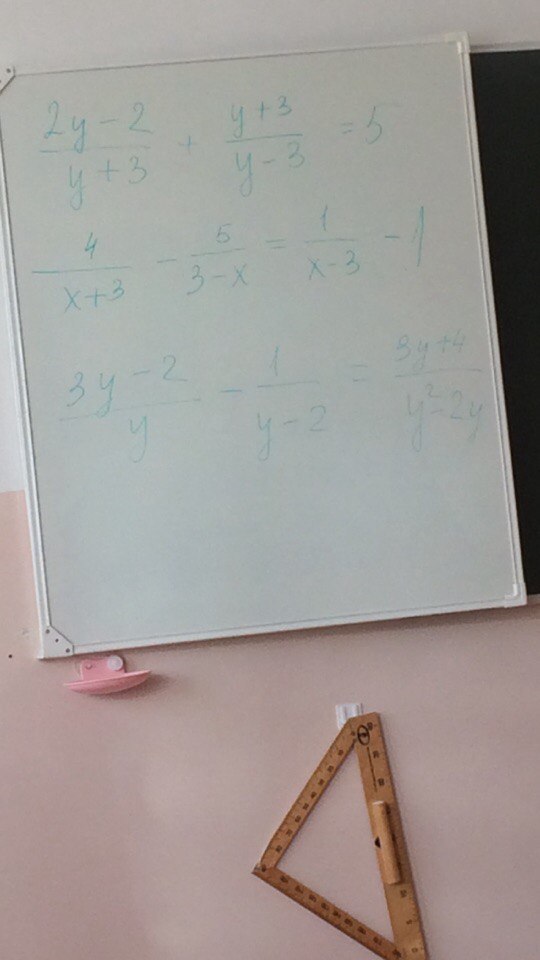 (2y-2)/(y+3) + (y+3)/(y-3) = 5
4/(x+3) - 5/(3-x) = 1/(x-3) - 1
(3y-2)/y - 1/(y-2) = (3y+4)/(y²-2y)